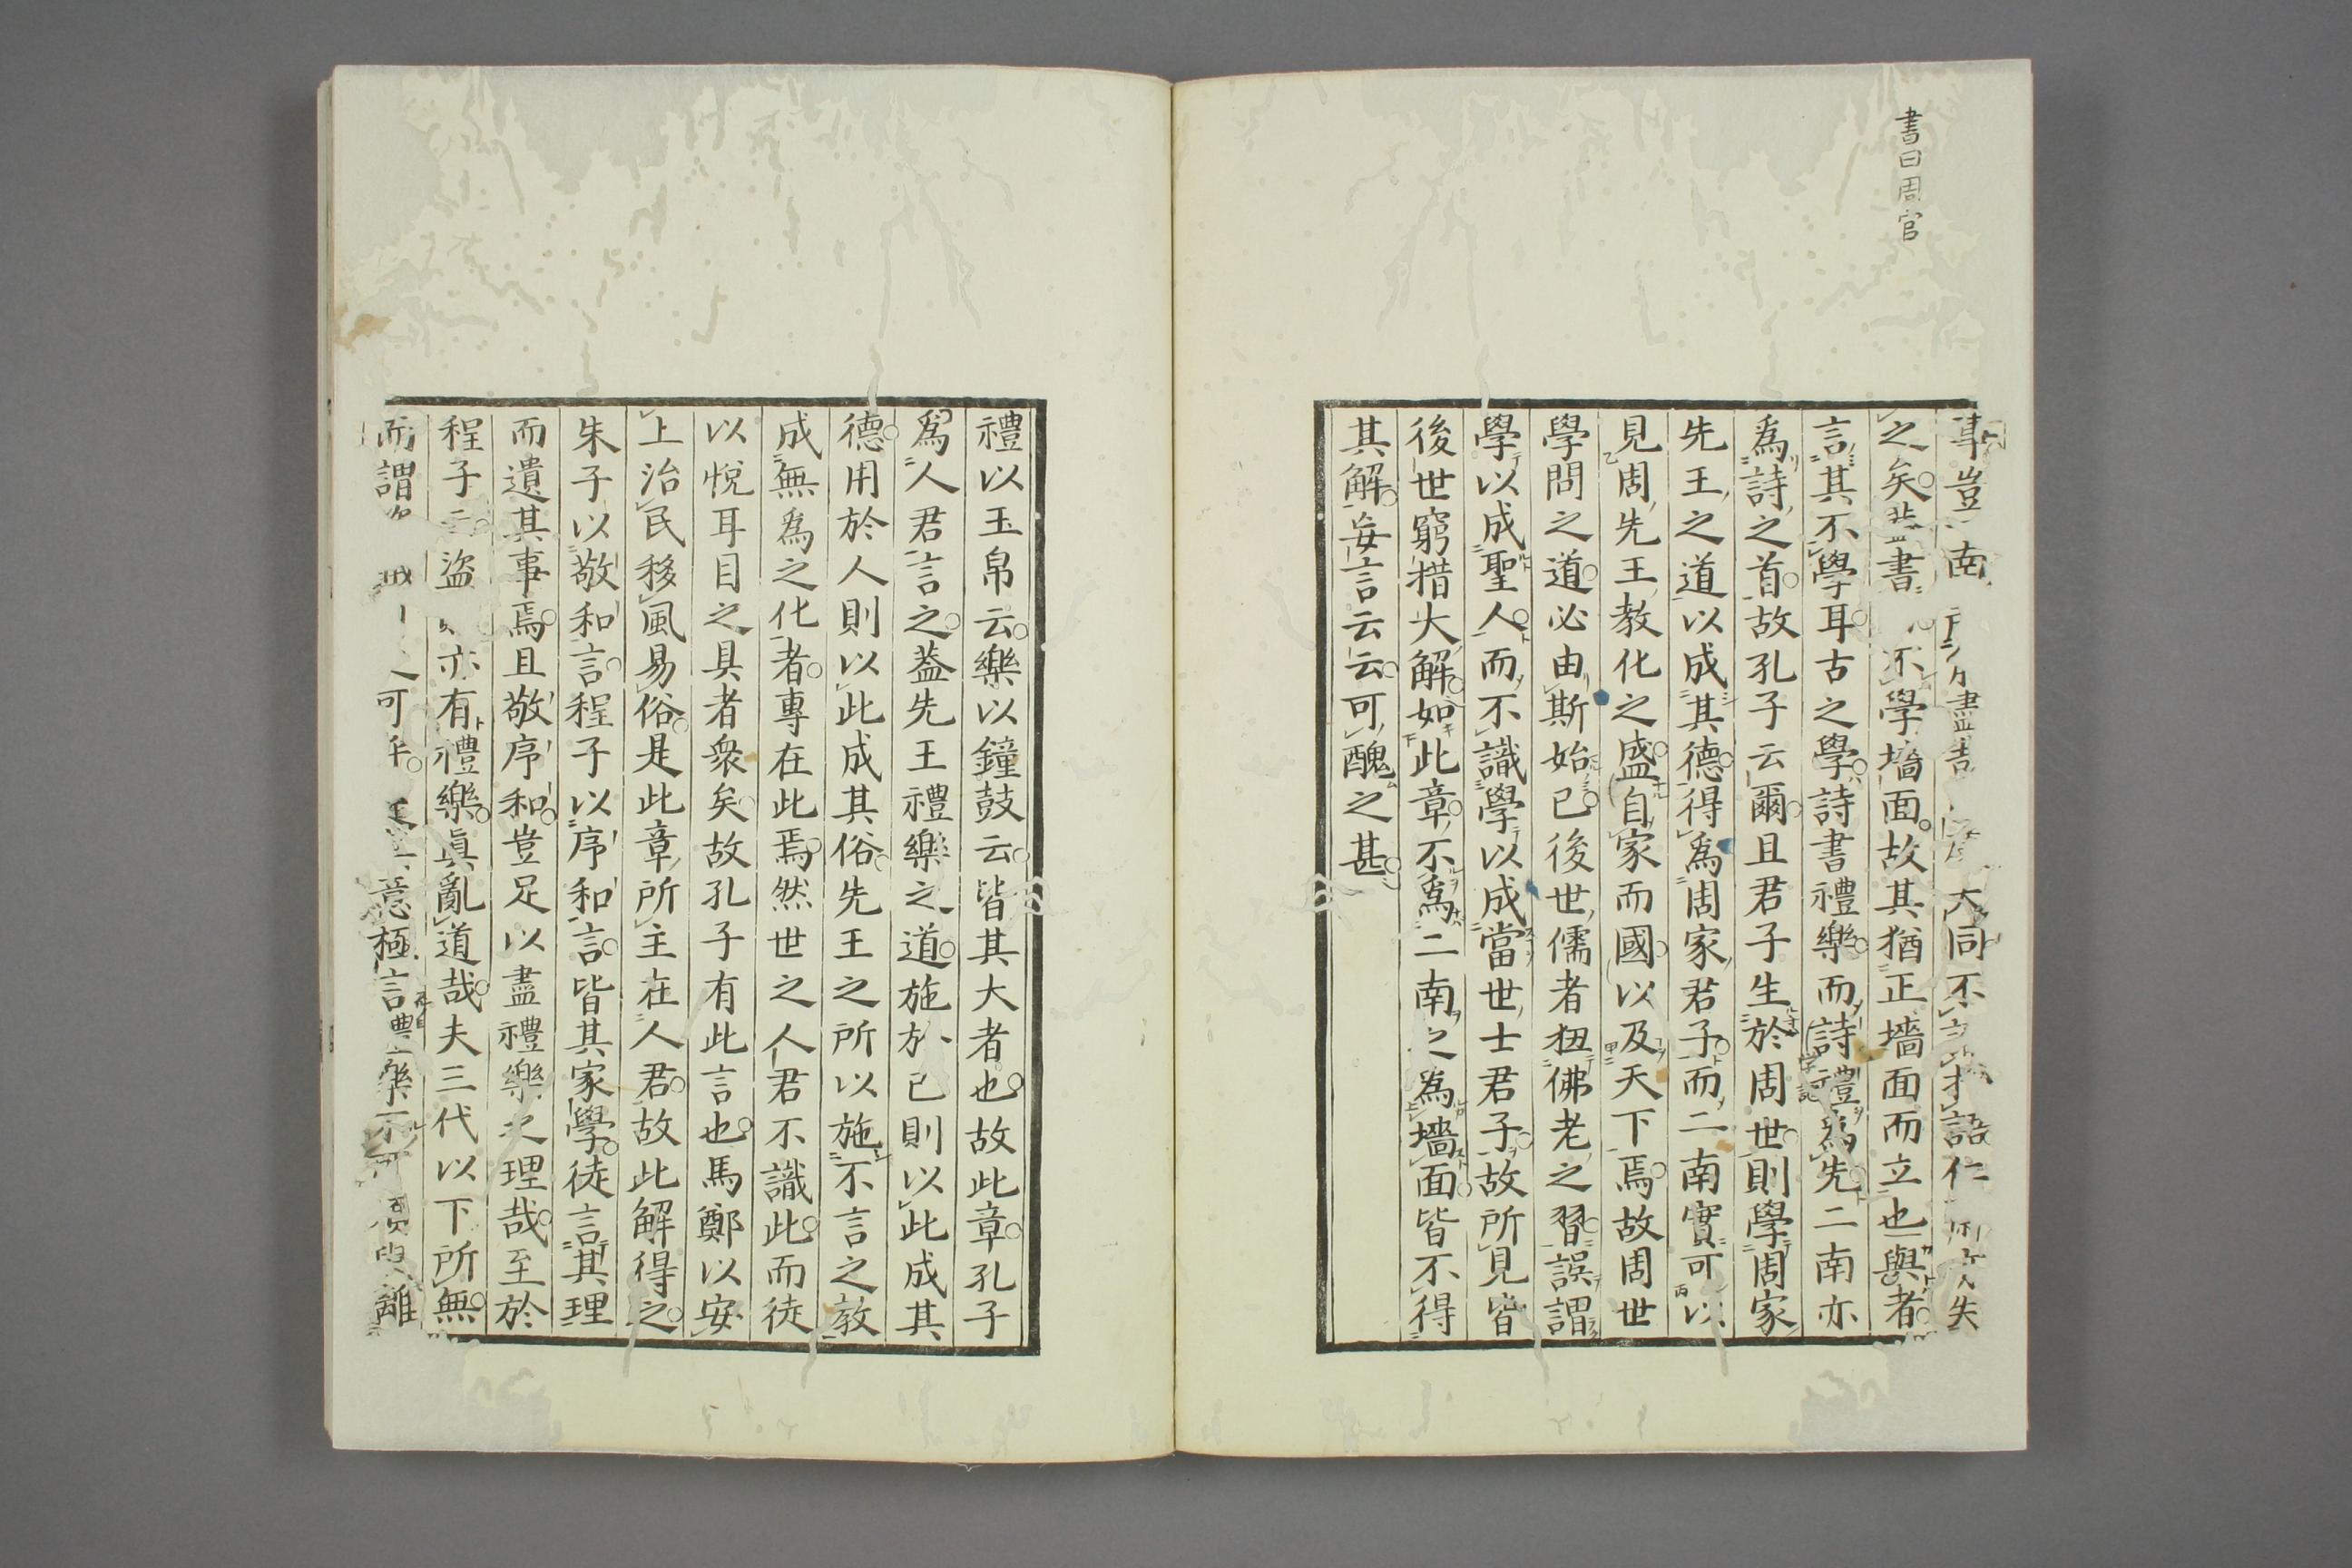 書曰周官
事豈 南 盡 大同不 語仁 失
之矣 書 不學墻面故其猶正墻面而立也與者
言其不學耳古之學詩書禮樂而詩禮爲先二南亦
学記
爲詩之首故孔子云爾且君子生於周世則學周家
先王之道以成其德得爲周家君子而二南實可以
見周先王教化之盛自家而國以及天下焉故周世
學問之道必由斯始已後世儒者狃佛老之習誤謂
學以成聖人而不識學以成當世士君子故所見皆
後世窮措大解如此章不爲二南之爲墻面皆不得
其解妄言云云可醜之甚
禮以玉帛云樂以鐘鼓云皆其大者也故此章孔子
爲人君言之蓋先王禮樂之道施於己則以此成其
德用於人則以此成其俗先王之所以施不言之教
成無爲之化者專在此焉然世之人君不識此而徒
以悅耳目之具者衆矣故孔子有此言也馬鄭以安
上治民移風易俗是此章所主在人君故此解得之
朱子以敬和言程子以序和言皆其家學徒言其理
而遺其事焉且敬序和豈足以盡禮樂之理哉至於
程子云盜 亦有禮樂眞亂道哉夫三代以下所無
而謂 之可乎 意極言禮樂不可 離